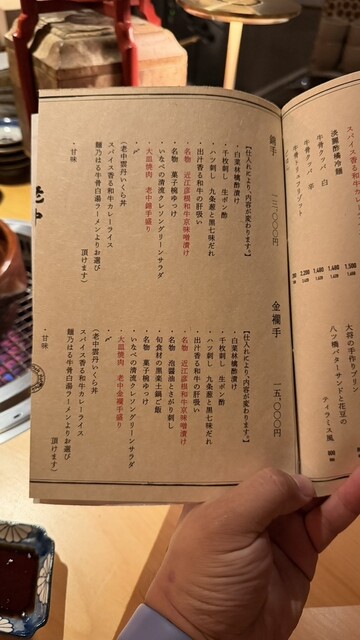 スパイス香る和牛カレーライス
淡麗酢橘冷麺
牛骨クッパ 白
牛骨クッパ 辛
牛骨トリュフリゾット
1,500
1,480
1,480
1,280
大将の手作りプリン
八ツ橋バターサンドと花豆の
ティラミス風
錦手 一三、〇〇〇円
【仕入れにより、内容が変わります。】
・白菜林檎酢漬け
・千枚刺し 生ポン酢
・ハツ刺し 九条葱と黒七味だれ
・出汁香る和牛の肝吸い
・名物 近江彦根和牛京味噌漬け
・名物 菓子椀ゆっけ
・いなべの清流クレソングリーンサラダ
・大皿焼肉 老中錦手盛り
・〆
（老中雲丹いくら丼
スパイス香る和牛カレーライス
麺乃はる牛骨白湯ラーメンよりお選び
頂けます）
・甘味
金襴手 一五、〇〇〇円
【仕入れにより、内容が変わります。】
・白菜林檎酢漬け
・千枚刺し 生ポン酢
・ハツ刺し 九条葱と黒七味だれ
・出汁香る和牛の肝吸い
・名物 近江彦根和牛京味噌漬け
・名物 泡醤油とさがり刺し
・旬食材の黒楽土鍋ご飯
・名物 菓子椀ゆっけ
・いなべの清流クレソングリーンサラダ
・大皿焼肉 老中金襴手盛り
・〆
（老中雲丹いくら丼
スパイス香る和牛カレーライス
麺乃はる牛骨白湯ラーメンよりお選び
頂けます）
・甘味